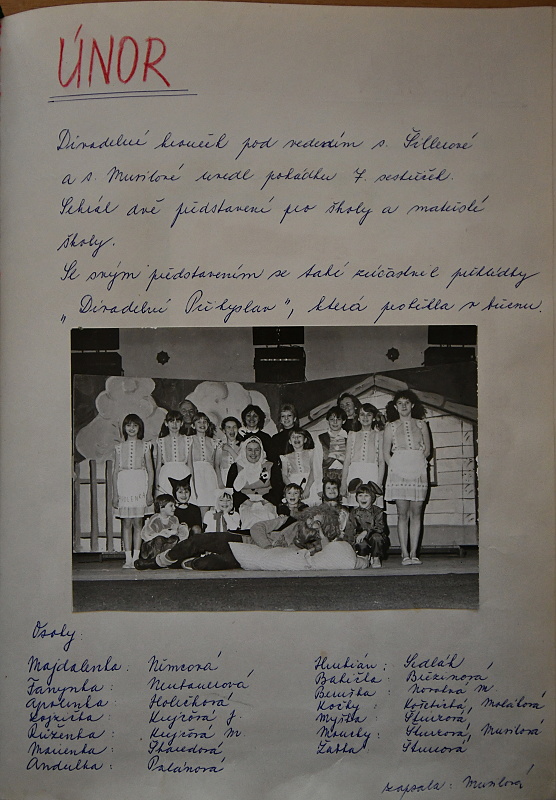 ÚNOR
Divadelní kroužek pod vedením s. Šillerové
a s. Musilové uvedl pohádku 7. sestřiček.
Sehrál dvě představení pro školy a mateřské
školy.
Se svým představením se také zúčastnil přehlídky
„Divadelní Přibyslav", která proběhla v březnu.
Osoby:
Majdalenka: Němcová
Fanynka:
Apolenka: Holečková
Lojzička: Krejčová J.
Růženka: Krejčová M.
Mařenka:
Andulka:
Hrubián: Sedlák
Babička: Březinová
Beruška: Novotná M.
Kočky:
Myška:
Mouchy: Musilová
Žabka:
zapsala: Musilová